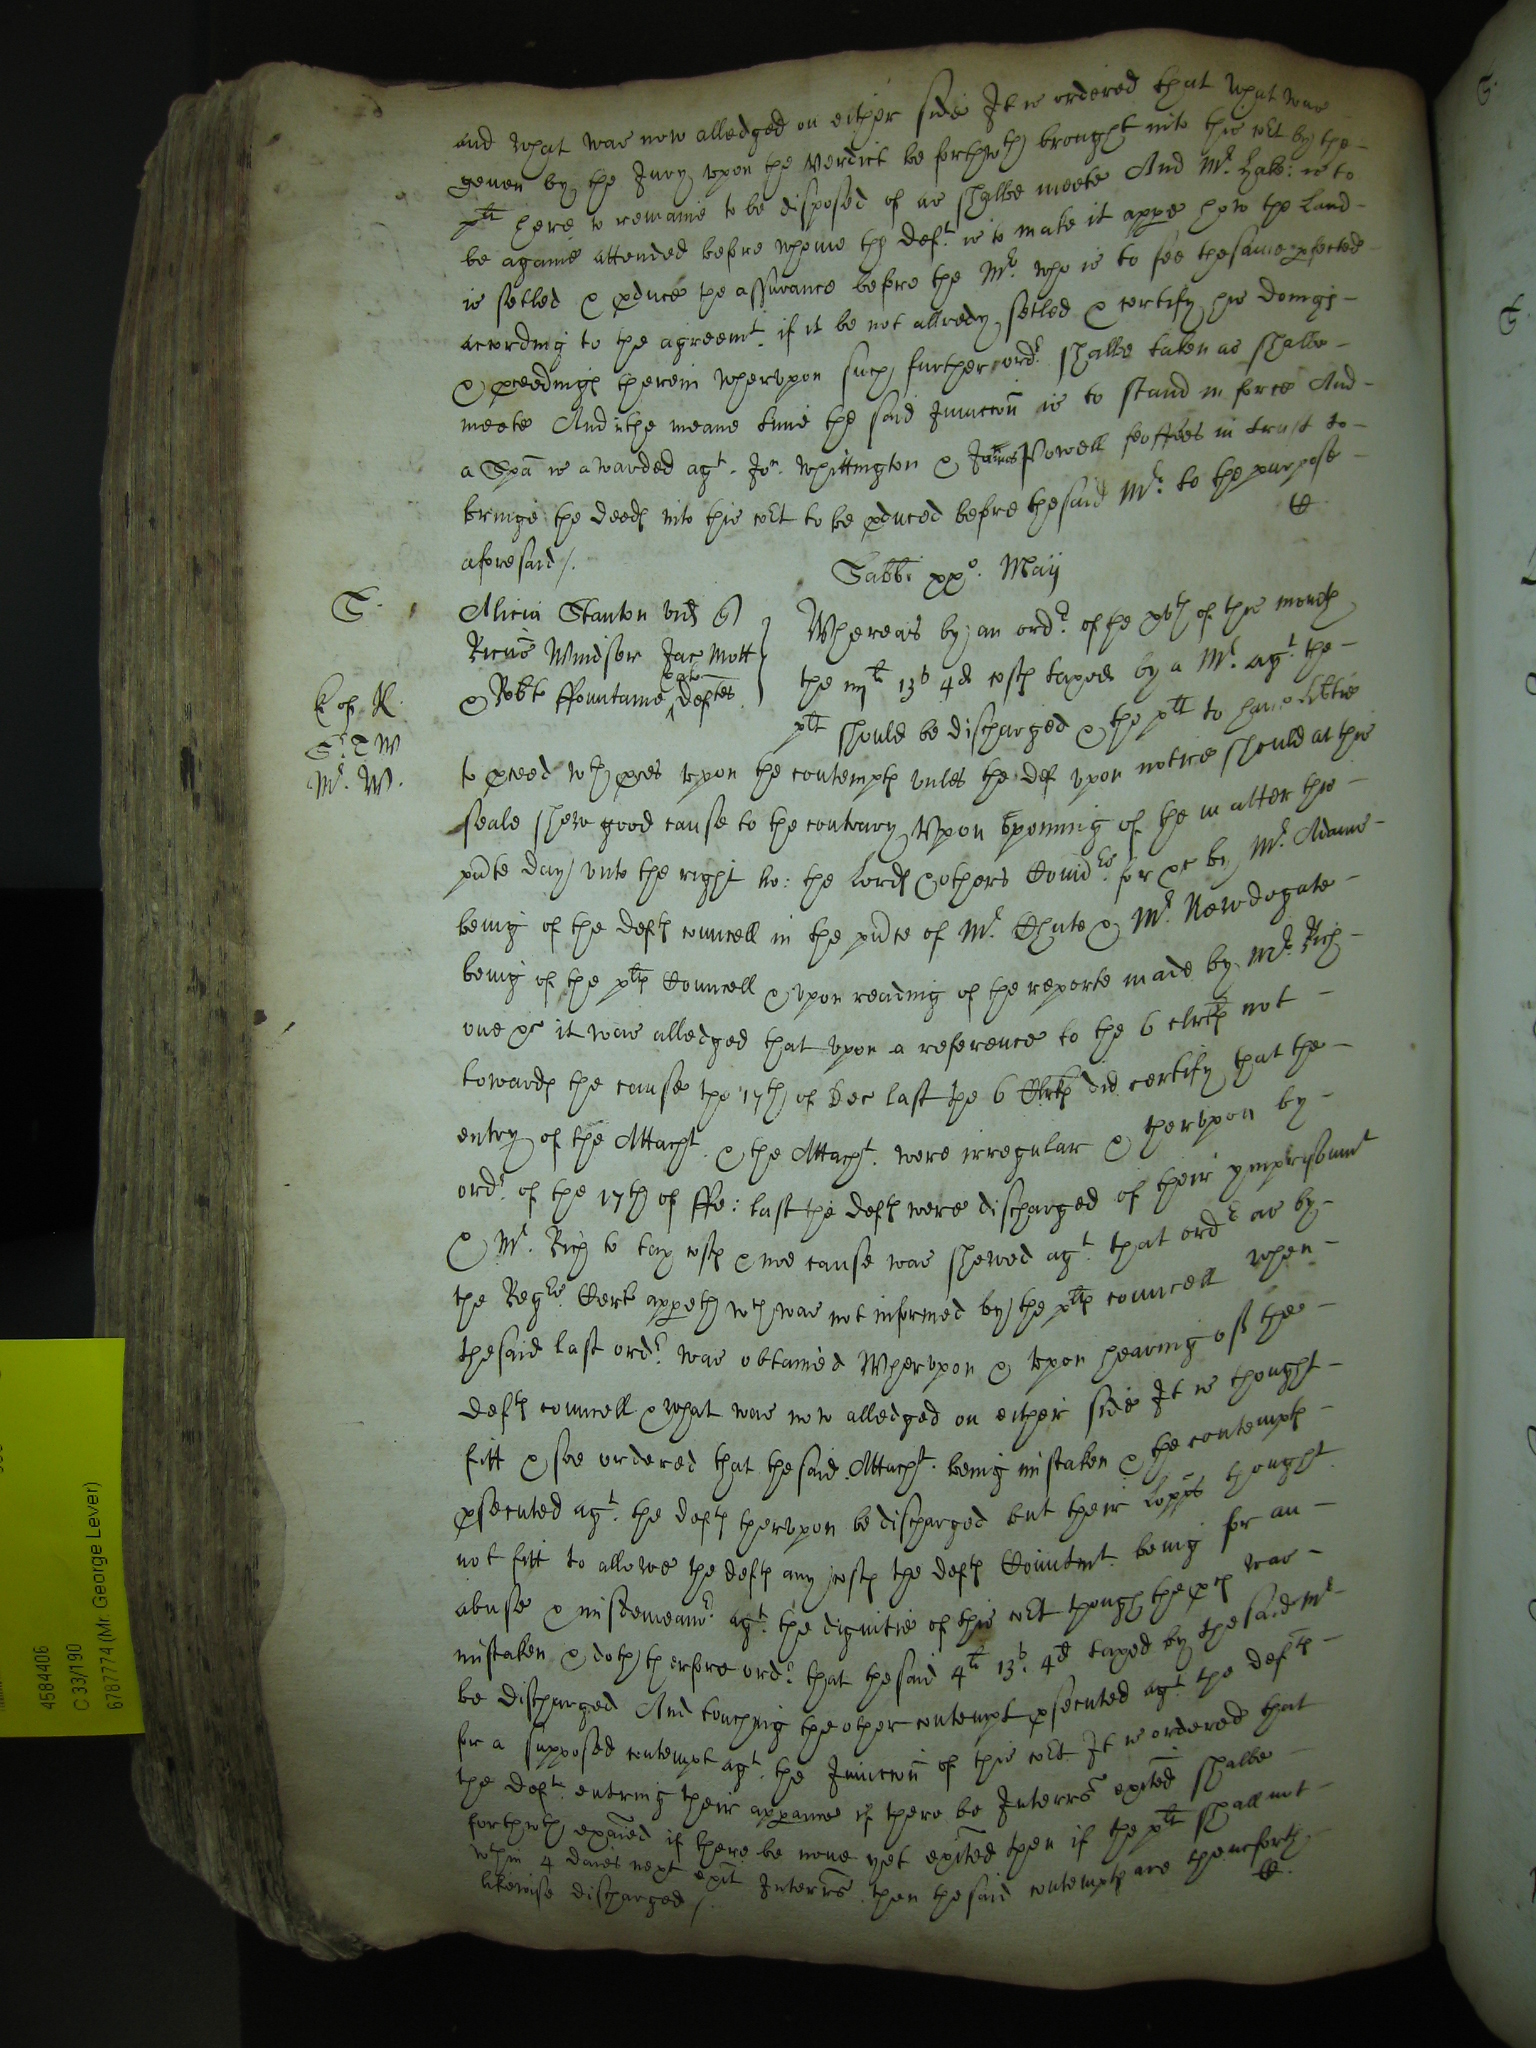 and what was now alledged on either side It is ordered that what was
geven by the Jury upon the verdict be forthwth brought into this cort by the
plt here to remaine to be disposed of as shalbe meete And Mr. Hake: is to
be againe attended before whome the Deft. is to make it appe how the Land
is setled & pduce the assurance before the Mr. who is to see the same pfected
according to the agreemt. if it be not allredy setled & certify his doings
& pceedings therein wherupon such further ordr. shalbe taken as shalbe
meete And in the meane time the said Iniunccon is to stand in force And
a Spa is awarded agt. Jon. Whittington & James Powell feoffees in trust to
bringe the deeds into this cort to be pduced before the said Mr. to the purpose
aforesaid /.
Sabbi xxo. Maij
S.
Alicia Stanton vid &
Ricus Windsor Jac Mott
& Robto ffountaine deftes
Whereas by an ordr. of the xvth of this month
the iiijli 13s 4d costs taxed by a Mr. agt. the
plt should be discharged & the plt to have libtie
K of R.
Sr. T W
Mr. W.
to pceed wth pces upon the contempts unles the def upon notice should at this
seale shew good cause to the contrary Upon opening of the matter this
pnte day unto the right ho: the Lords & others for &c by Mr. Adams
being of the defts councell in the pnce of Mr. Chute & Mr. Newdegate
being of the plts Councell & upon reading of the reporte made by Mr. Rich
one &c it was alledged that upon a reference to the 6 clerks not
towards the cause the 17th of Dec last the 6 Clerks did certify that the
entry of the Attacht. & the Attacht. were irregular & therupon by
ordr. of the 17th of ffe: last the defts were discharged of their ymprisonmt
& Mr. Rich to tax costs & noe cause was shewed agt. that ordr as by
the Regrs. Certe appeth wch was not informed by the plts councell when
the said last ordr. was obtained Wherupon & upon hearing of the
defts councell & what was now alledged on either side It is thought
fitt & soe ordered that the said Attacht. being mistaken & the contempts
psecuted agt. the defts therupon be discharged but their Lopps thought
not fitt to allowe the defts any costs the defts Contemt. being for an
abuse & misdemeanr. agt. the dignitie of this cort though the pces was
mistaken & doth therfore ordr. that the said 4li 13s. 4d taxed by the said Mr.
be discharged And touching the other contempt psecuted agt. the defts
for a supposed contempt agt. the Iniunccon of this cort It is ordered that
the deft. entring their appance if there be Interrs exited shalbe
forthwth exaied if there be none yet exited then if the plt shall not
wthin 4 daies next exit Interrs then the said contempts are thencforth
likewise discharged /.
4584406
C 33/190
6787774 (Mr. George Lever)